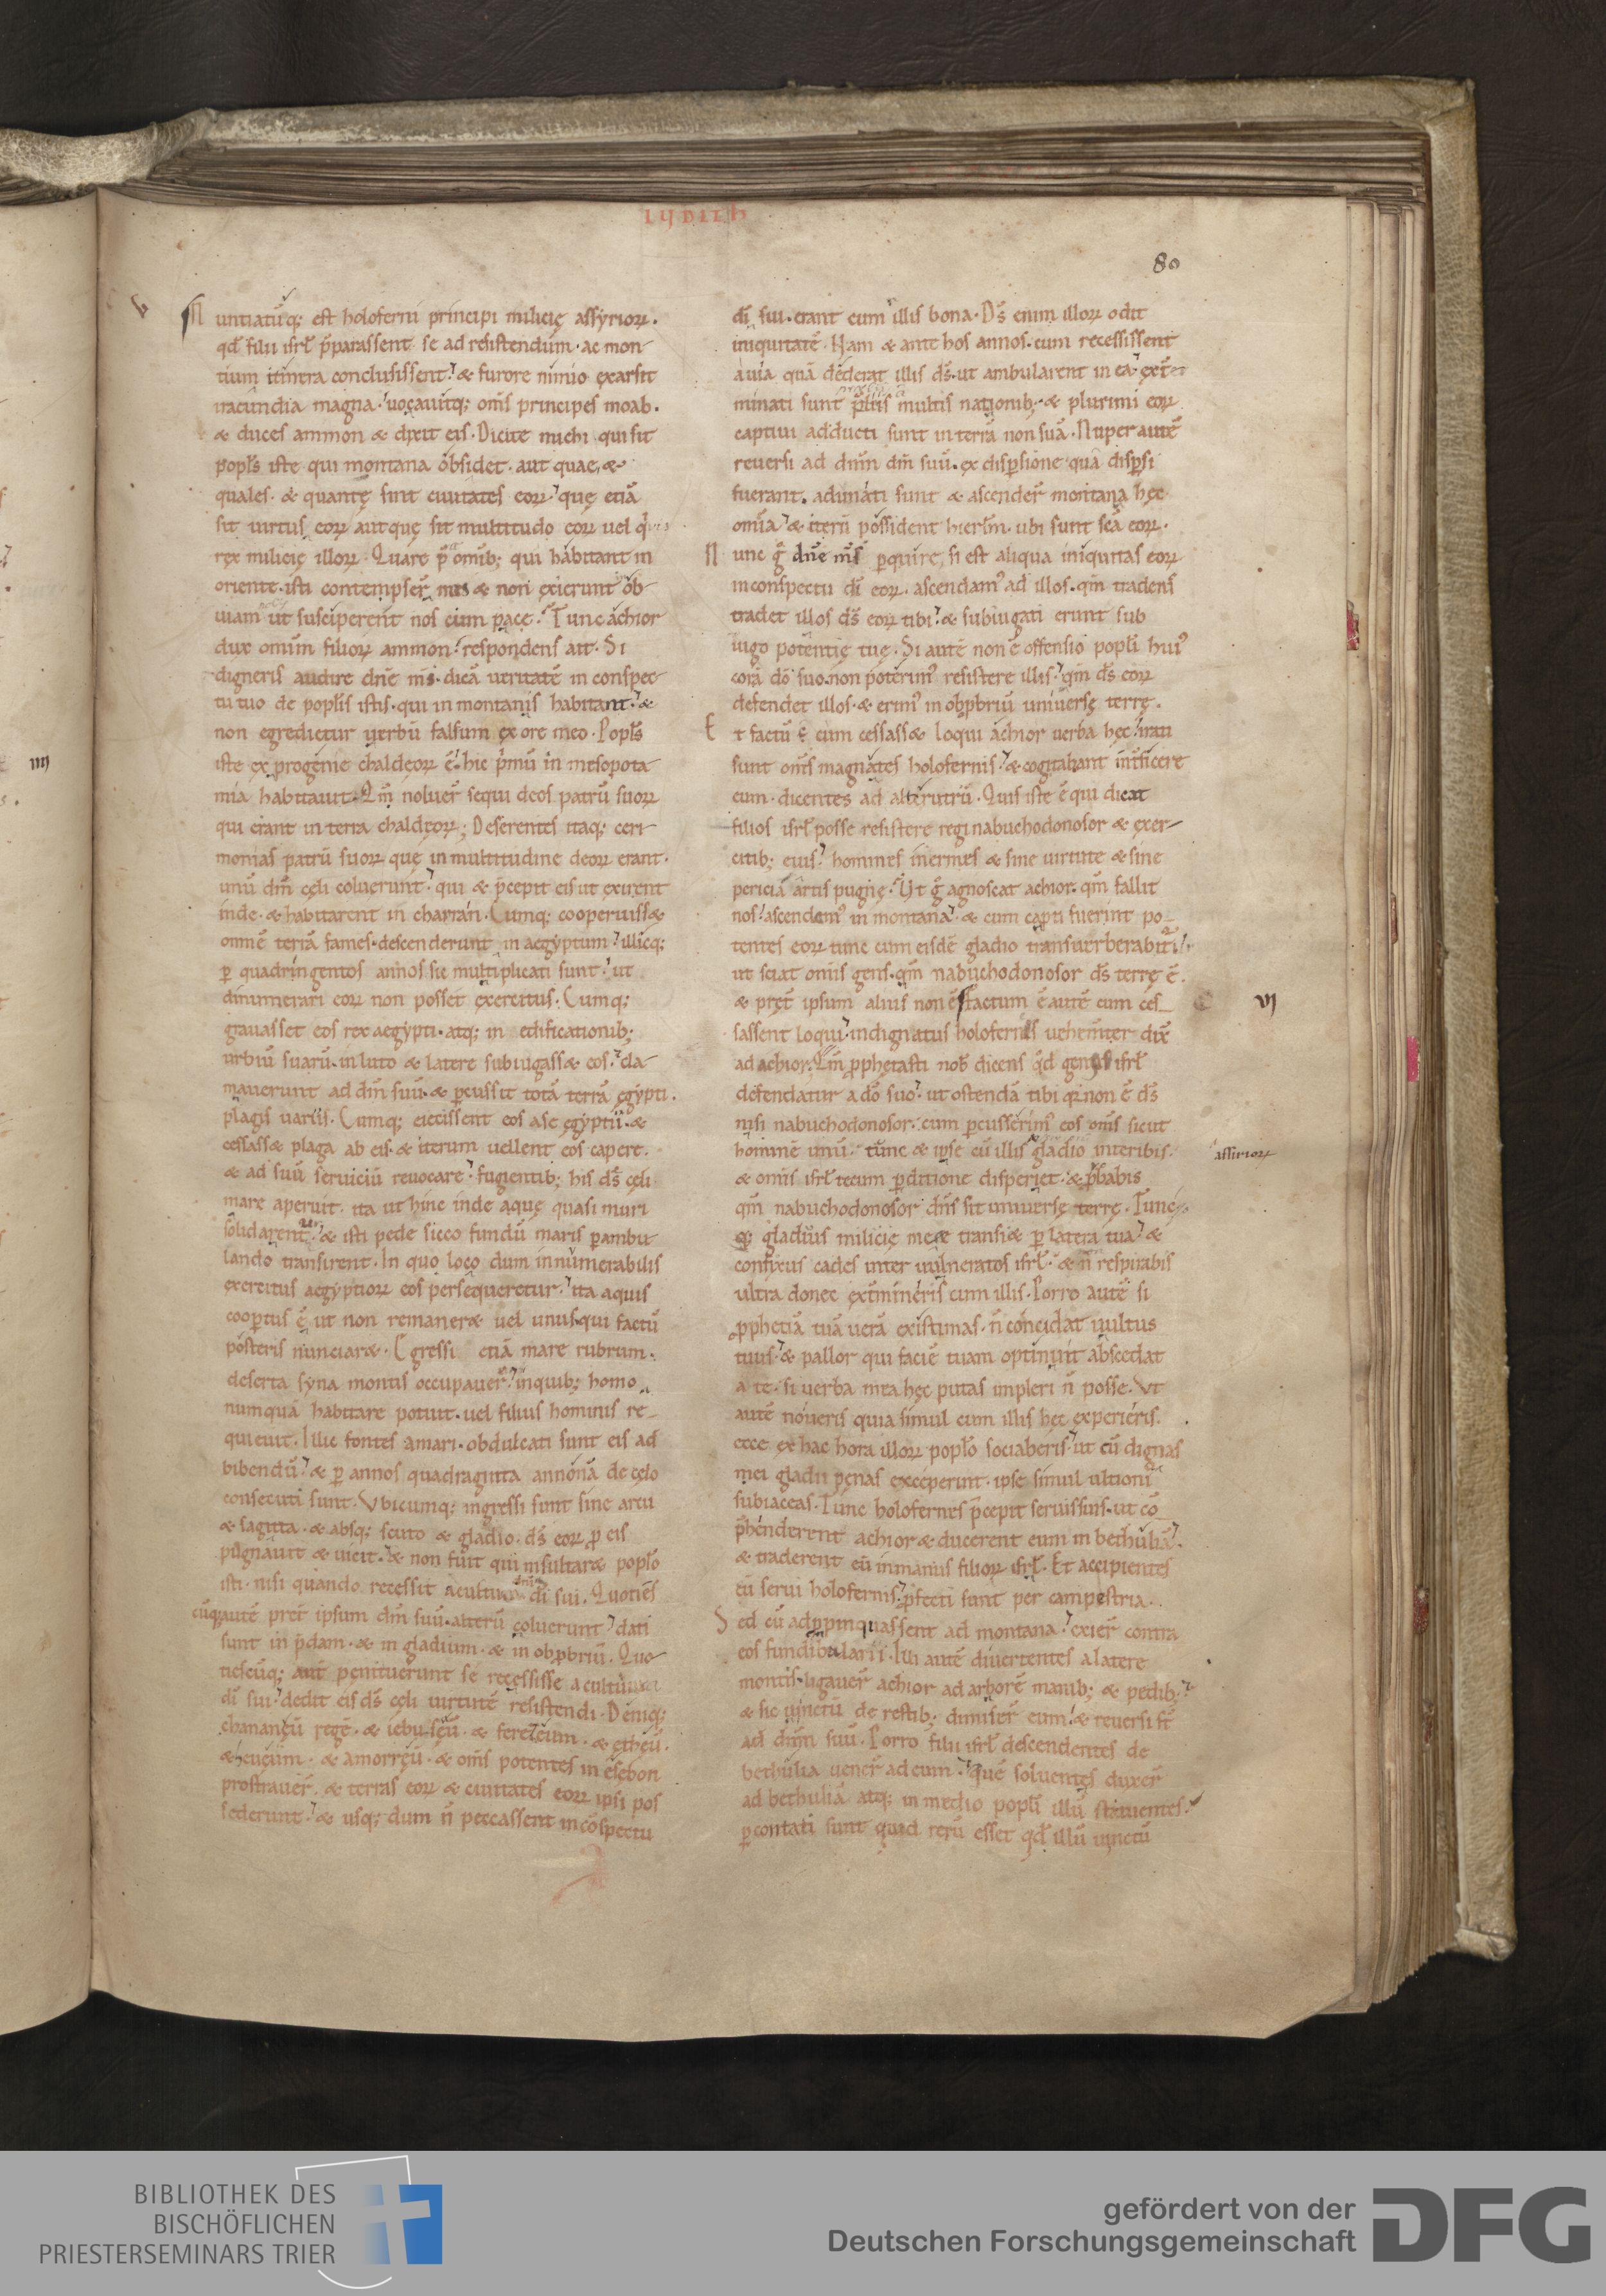 IUDITH
80
V
Nuntiatũq; est holoferni principi milicię assyrioꝝ.
qđ filii isrł p̃parassent se ad resistendum. ac mon
tium itinera conclusissent. & furore nimio exarsit
iracundia magna. uocauitq; om̃s principes moab.
& duces ammon & dixit eis. Dicite michi qui sit
popl̃s iste qui montana obsidet. aut quae &
quales. & quantę sint ciuitates eoꝝ. quę etiã
sit uirtus eoꝝ aut quę sit multitudo eoꝝ uel qis
rex milicię illoꝝ. Quare p̃ omĩb; qui habitant in
oriente. isti contempser̃ nos & non exierunt ob
uiam ut susciperent nos cum pace. Tunc achior
dux omĩm filioꝝ ammon. respondens ait. Si
digneris audire dñe m̃s. dicã ueritatẽ in conspec
tu tuo de popl̃is istis. qui in montanis habitant. &
non egredietur uerbũ falsum ex ore meo. Popl̃s
iste ex progenie chaldeoꝝ ẽ. hic p̃mũ in mesopota
mia habitauit. Qm̃ noluer̃ sequi deos patrũ suoꝝ
qui erant in terra chaldeoꝝ; Deserentes itaq; ceri
monias patrũ suoꝝ quę in multitudine deoꝝ erant.
unũ dm̃ cęli coluerunt. qui & p̃cepit eis ut exirent
inde. & habitarent in charran. Cumq; cooperuiss&
omnẽ terrã fames. descenderunt in aegyptum. illicq;
ꝑ quadringentos annos sic multiplicati sunt. ut
dinumerari eoꝝ non posset exercitus. Cumq;
grauasset eos rex aegypti. atq; in edificationib;
urbiũ suarũ. in luto & latere subiugass& eos. cla
mauerunt ad dm̃ suũ. & ꝑcussit totã terrã ęgypti.
plagis uariis. Cumq; eiecissent eos a se ęgyptii. &
cessass& plaga ab eis. & iterum uellent eos capere.
& ad suũ seruiciũ reuocare. fugientib; his ds̃ cęli
mare aperuit. ita ut hinc inde aquę quasi muri
solidarent̃. & isti pede sicco fundũ maris ꝑambu
lando transirent. In quo loco dum innumerabilis
exercitus aegyptioꝝ eos persequeretur. ita aquis
cooꝑtus ẽ ut non remaner& uel unus. qui factũ
posteris nunciar&. Egressi etiã mare rubrum.
deserta syna montis occupauer̃. inquib; homo
numquã habitare potuit. uel filius hominis re
quieuit. Illic fontes amari. obdulcati sunt eis ad
bibendũ. & ꝑ annos quadraginta annonã de cęlo
consecuti sunt. Vbicumq; ingressi sunt sine arcu
& sagitta. & absq; scuto & gladio. ds̃ eoꝝ ꝓ eis
pugnauit & uicit. & non fuit qui insultar& popl̃o
isti. nisi quando recessit a cultura dñi di sui. Quotiẽs
cũq; autẽ pret̃ ipsum dm̃ suũ. alterũ coluerunt. dati
sunt in p̃dam. & in gladium. & in obꝓbriũ. Quo
tiescũq; aut penituerunt se recessisse a cultura
di sui. dedit eis ds̃ cęli uirtutẽ resistendi. Deniq;
chananęũ regẽ. & iebusęũ. & ferezeum. & etheũ.
& eueũm. & amorręũ. & om̃s potentes in esebon
prostrauer̃. & terras eoꝝ & ciuitates eoꝝ ipsi pos
sederunt. & usq; dum ñ peccassent in cõspectu
di sui. erant cum illis bona. Ds̃ enim illoꝝ odit
iniquitatẽ. Nam & ante hos annos. cum recessissent
a uia quã dederat illis ds̃. ut ambularent in ea. ext̃
minati sunt p̃liis multis nationib; & plurimi eoꝝ
captiui adducti sunt in terrã non suã. Nuper autẽ
reuersi ad dñm dm̃ suũ. ex disꝑsione qua disꝑsi
fuerant. adunati sunt & ascender̃ montana hęc
omĩa. & iterũ possident hierl̃m. ubi sunt sc̃a eoꝝ.
Nunc g̃ dñe m̃s ꝑquire, si est aliqua iniquitas eoꝝ
in conspectu di eoꝝ. ascendam᾿ ad illos. qm̃ tradens
tradet illos ds̃ eoꝝ tibi. & subiugati erunt sub
iugo potentię tuę. Si autẽ non ẽ offensio popl̃i hui᾿
corã dõ suo. non poterim᾿ resistere illis. qm̃ ds̃ eoꝝ
defendet illos. & erim᾿ in obꝓbriũ uniuersę terrę.
Et factũ ẽ cum cessass& loqui achior uerba hęc. irati
sunt om̃s magnates holofernis. & cogitabant int̃ficere
eum. dicentes ad alterutrũ. Quis iste ẽ qui dicat
filios isrł posse resistere regi nabuchodonosor & exer
citib; eius. homines inermes & sine uirtute & sine
pericia artis pugnę. Vt g̃ agnoscat achior. qm̃ fallit
nos. ascendem᾿ in montana. & cum capti fuerint po
tentes eoꝝ tunc cum eisdẽ gladio transuerberabit̃.
ut sciat omĩs gens. qm̃ nabuchodonosor ds̃ terrę ẽ.
& pręt̃ ipsum alius non ẽ. Factum ẽ autẽ cum ces
VI
sassent loqui. indignatus holofernes uehem̃ter dix̃
ad achior. Qm̃ ꝓphetasti nob̃ dicens qđ gens isrł
defendatur a dõ suo. ut ostendã tibi qm̃ non ẽ ds̃
nisi nabuchodonosor. cum ꝑcusserim᾿ eos om̃s sicut
hominẽ unũ. tunc & ipse cũ illis gladio interibis.
assirioꝝ
& omĩs isrł tecum ꝑditione disperiet. & ꝓbabis
qm̃ nabuchodonosor dñs sit uniuersę terrę. Tunc
q; gladius milicię meae transi& ꝑ latera tua. &
confixus cades inter uulneratos isrł. & ñ respirabis
ultra donec ext̃mineris cum illis. Porro autẽ si
ꝓphetiã tuã uerã existimas. ñ concidat uultus
tuus. & pallor qui faciẽ tuam optinuit abscedat
a te. si uerba mea hęc putas impleri ñ posse. Vt
autẽ noueris quia simul cum illis hęc experieris.
ecce ex hac hora illoꝝ popl̃o sociaberis. ut cũ dignas
mei gladii pęnas exceperint. ipse simul ultioni
subiaceas. Tunc holofernes p̃cepit seruis suis. ut cõ
p̃henderent achior & ducerent eum in bethuliã.
& traderent eũ in manus filioꝝ isrł. Et accipientes
eũ serui holofernis. ꝓfecti sunt per campestria.
Sed cũ adꝓpinquassent ad montana. exier̃ contra
eos fundibularii. Illi autẽ diuertentes a latere
montis. ligauer̃ achior ad arborẽ manib; & pedib;
& sic uinctũ de restib; dimiser̃ eum. & reuersi st̃
ad dñm suũ. Porro filii isrł descendentes de
bethulia uener̃ ad eum. quẽ soluentes duxer̃
ad bethuliã atq; in medio popl̃i illũ statuentes.
ꝑcontati sunt quid rerũ esset qđ illũ uinctũ
IIII
BIBLIOTHEK DES
BISCHÖFLICHEN
PRIESTERSEMINARS TRIER
gefördert von der
Deutschen Forschungsgemeinschaft
DFG